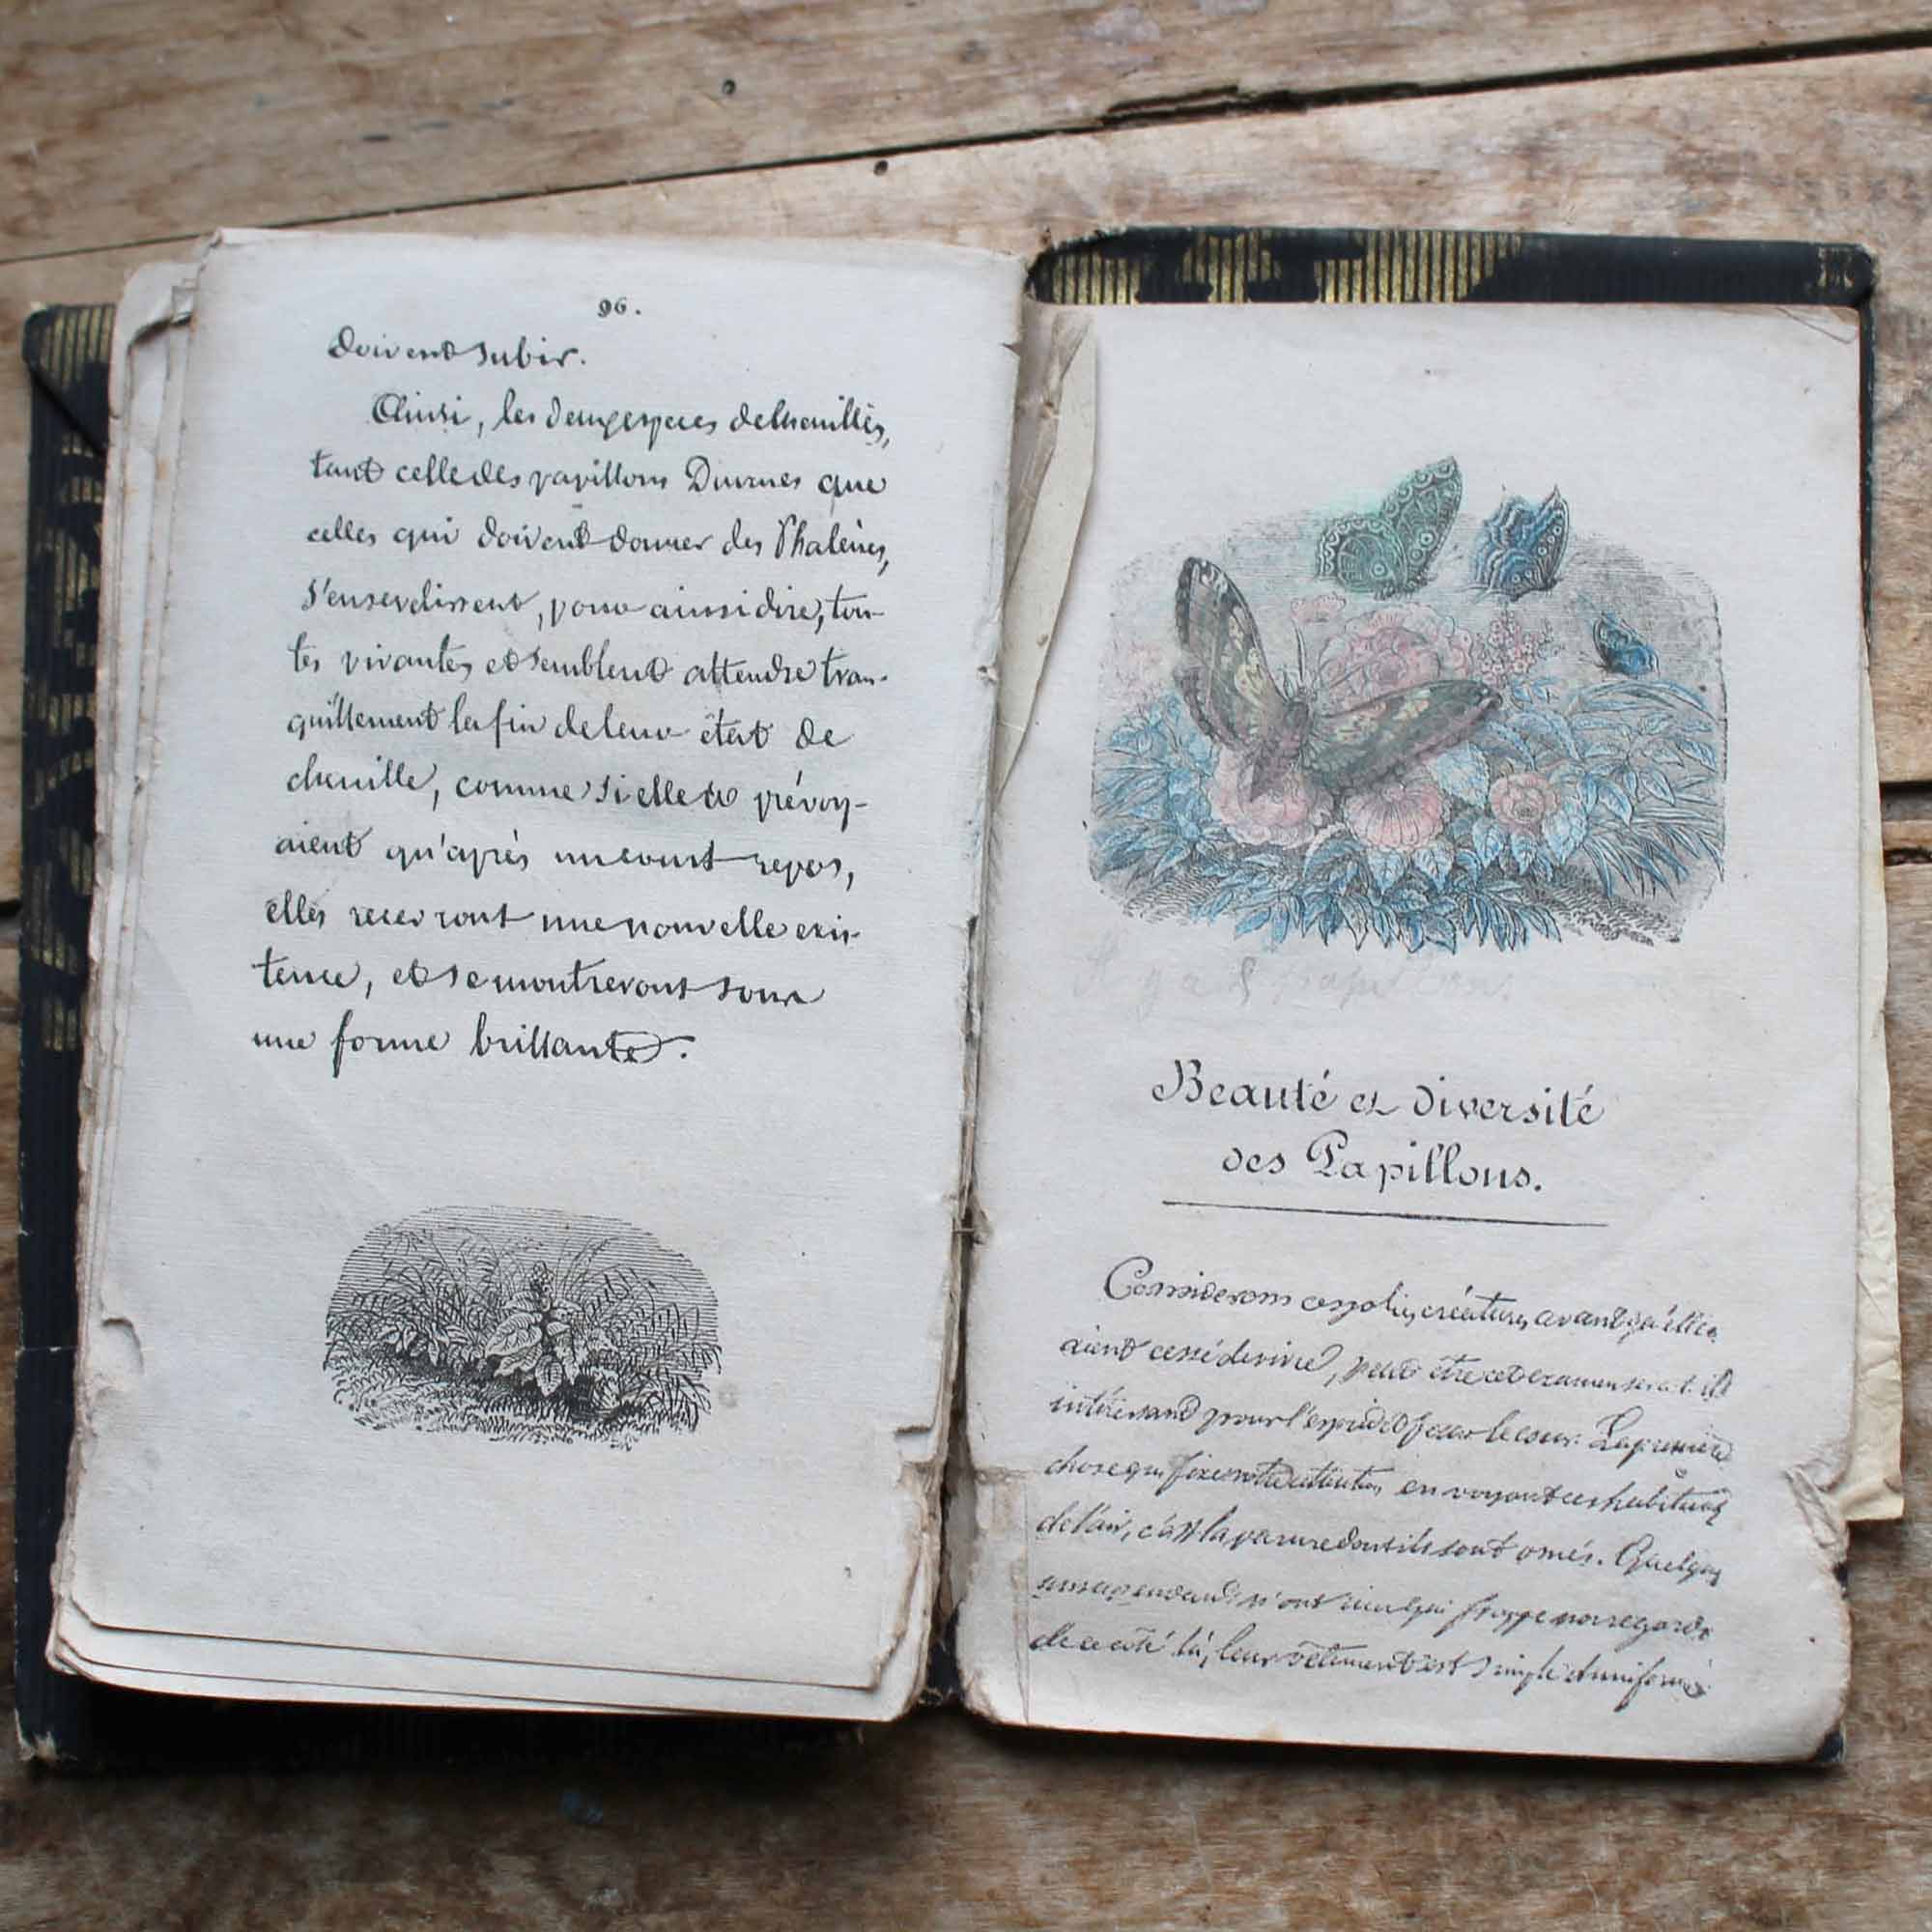 96.
doivent subir.
Ainsi, les deux especes de chenilles,
tant celle des papillons Diurnes que
celles qui doivent donner des Phalènes,
s'ensevelissent, pour ainsi dire, tou-
tes vivantes et semblent attendre tran-
quillement la fin de leur état de
chenille, comme si elles prévoy-
aient qu'après un court repos,
elles recevront une nouvelle exis-
tence, et se montreront sous
une forme brillante.
Il y a papillons
Beauté et diversité
des Papillons.
Considerons ces jolies créatures avant qu'elles
aient cessé de vivre, peut être cet examen sera t-il
intéressant pour l'esprit et pour le cœur. La première
chose qui fixe notre attention, en voyant ces habitans
de l'air, c'est la parure dont ils sont ornés. Quelques
uns cependant n'ont rien qui frappe nos regards
de ce coté là, leur vêtement est simple et uniforme